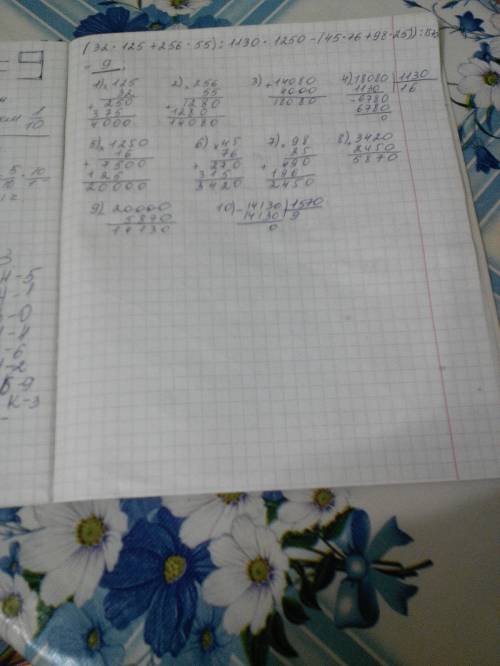 (32 · 125 + 256 · 55) : 1130 · 1250 - (45 · 76 + 98 · 25)) :
= 9
1) × 125
32
+ 250
375
4000
2) × 256
55
+ 1280
1280
14080
3) + 14080
4000
18080
4) 18080 | 1130
1130 | 16
- 6780
6780
0
5) × 1250
16
+ 7500
125
20000
6) × 45
76
+ 270
315
3420
7) × 98
25
+ 490
196
2450
8) + 3420
2450
5870
9) - 20000
5870
14130
10) - 14130 | 1570
14130 | 9
0
= 9
1
10
4-5
4-1
-0
-6
-2
Б-9
К-3